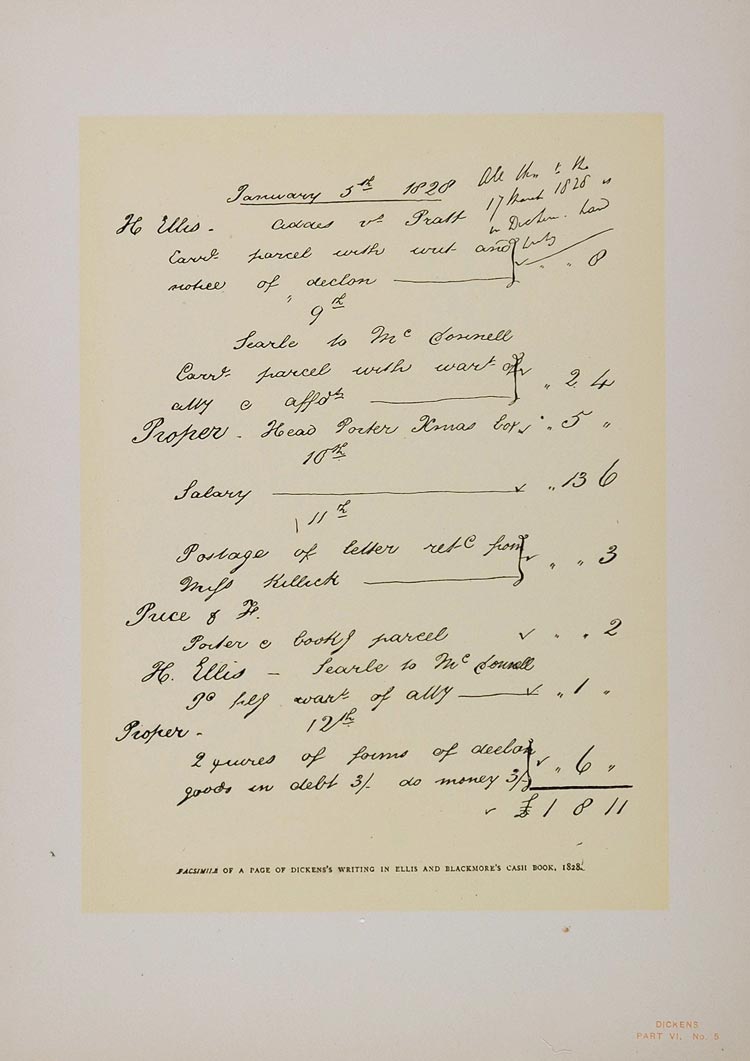 January 5th 1828
All this to the
17 March 1828 is
in Dickens' hand
H Ellis - Addes vs Pratt
Carrt parcel with writ and
notice of declon ——— ✓ " " 8
" 9th
Searle to Mc Connell
Carrt parcel with wart of
atty & affdt ——— ✓ " 2 4
Proper - Head Porter Xmas box ✓ " 5 "
10th
Salary ——— ✓ " 13 6
11th
Postage of letter retd from
Miss Killick ——— ✓ " " 3
Price & F.
Porter & bookg parcel ✓ " " 2
H. Ellis - Searle to Mc Connell
pd filg wart of atty —— ✓ " 1 "
Proper - 12th
2 quires of forms of declon
goods in debt 3/- do money 3/- ✓ " 6 "
✓ £ 1 8 11
FACSIMILE OF A PAGE OF DICKENS'S WRITING IN ELLIS AND BLACKMORE'S CASH BOOK, 1828.
DICKENS
PART VI. No. 5